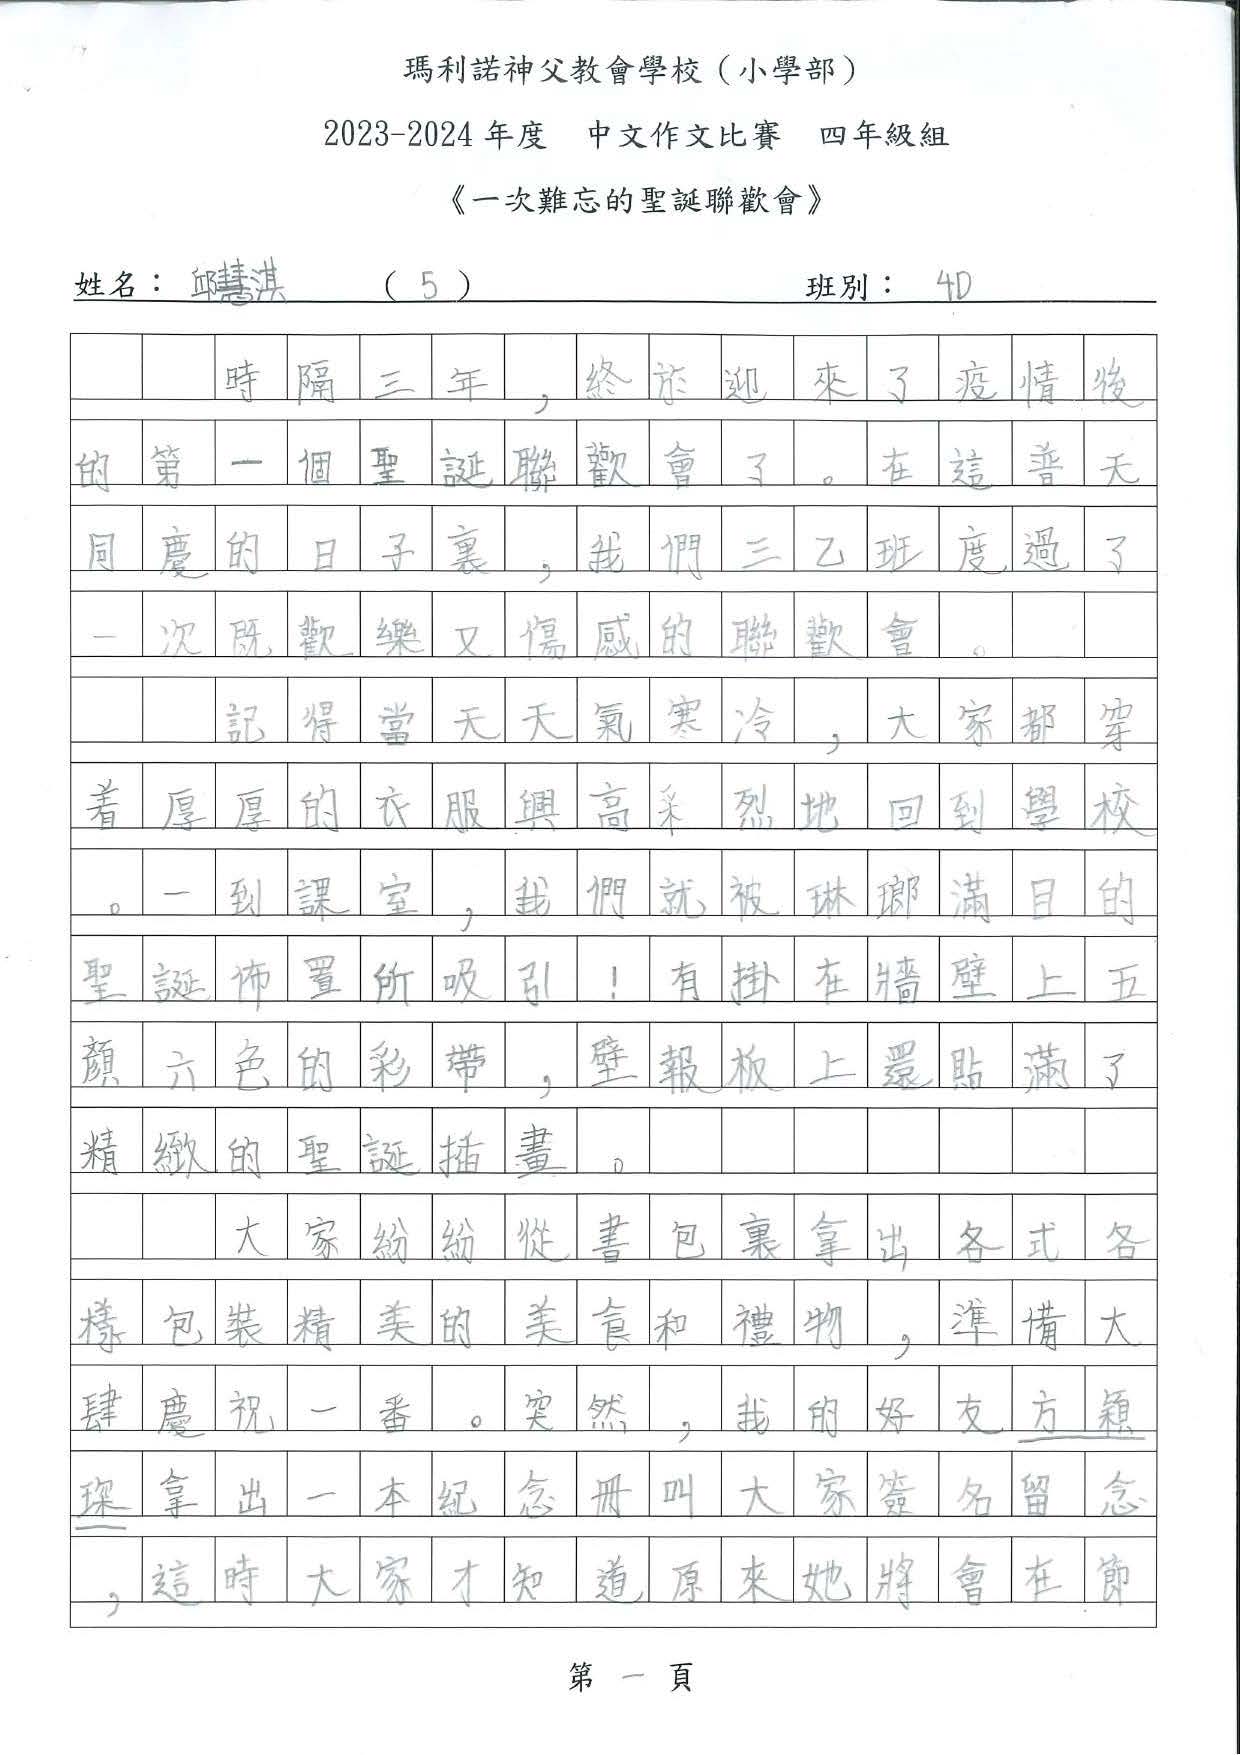 瑪利諾神父教會學校（小學部）
2023-2024 年度　中文作文比賽　四年級組
《一次難忘的聖誕聯歡會》
姓名： 邱慧淇 （ 5 ） 班別： 4D
時隔三年，終於迎來了疫情後
的第一個聖誕聯歡會了。在這普天
同慶的日子裏，我們三乙班度過了
一次既歡樂又傷感的聯歡會。
記得當天天氣寒冷，大家都穿
着厚厚的衣服興高采烈地回到學校
。一到課室，我們就被琳瑯滿目的
聖誕佈置所吸引！有掛在牆壁上五
顏六色的彩帶，壁報板上還貼滿了
精緻的聖誕插畫。
大家紛紛從書包裏拿出各式各
樣包裝精美的美食和禮物，準備大
肆慶祝一番。突然，我的好友方穎
琛拿出一本紀念冊叫大家簽名留念
，這時大家才知道原來她將會在節
第 一 頁